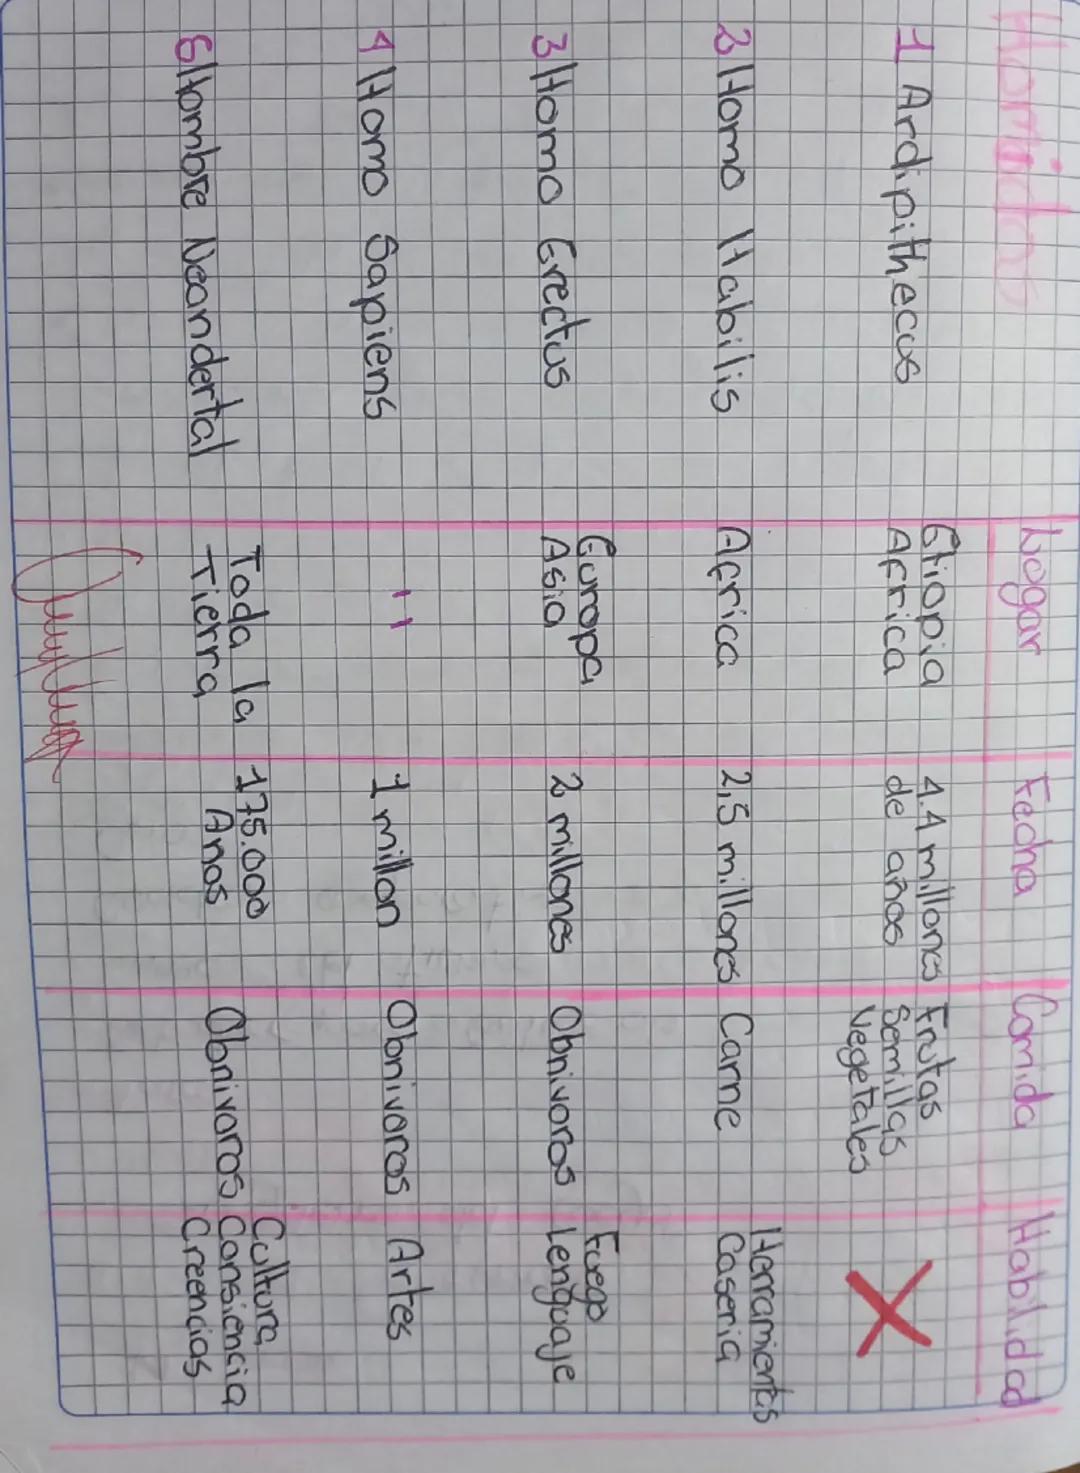 Homidos
Lugar Fecha Comida Habilidad
1 Ardipithecus Etiopia 4.4 millones Frutas
Africa de años Semillas
Vegetales
Herramientas
2 Homo Habilis Africa 2,5 millones Carne Caseria
Europa Fuego
3 Homo Erectus Asia 2 millones Obnivoros lenguaje
4 Homo Sapiens " 1 millon Obnivoros Artes
Toda la 175.000 Cultura
5 Hombre Neandertal Tierra Años Obnivoros Consiencia
Creencias